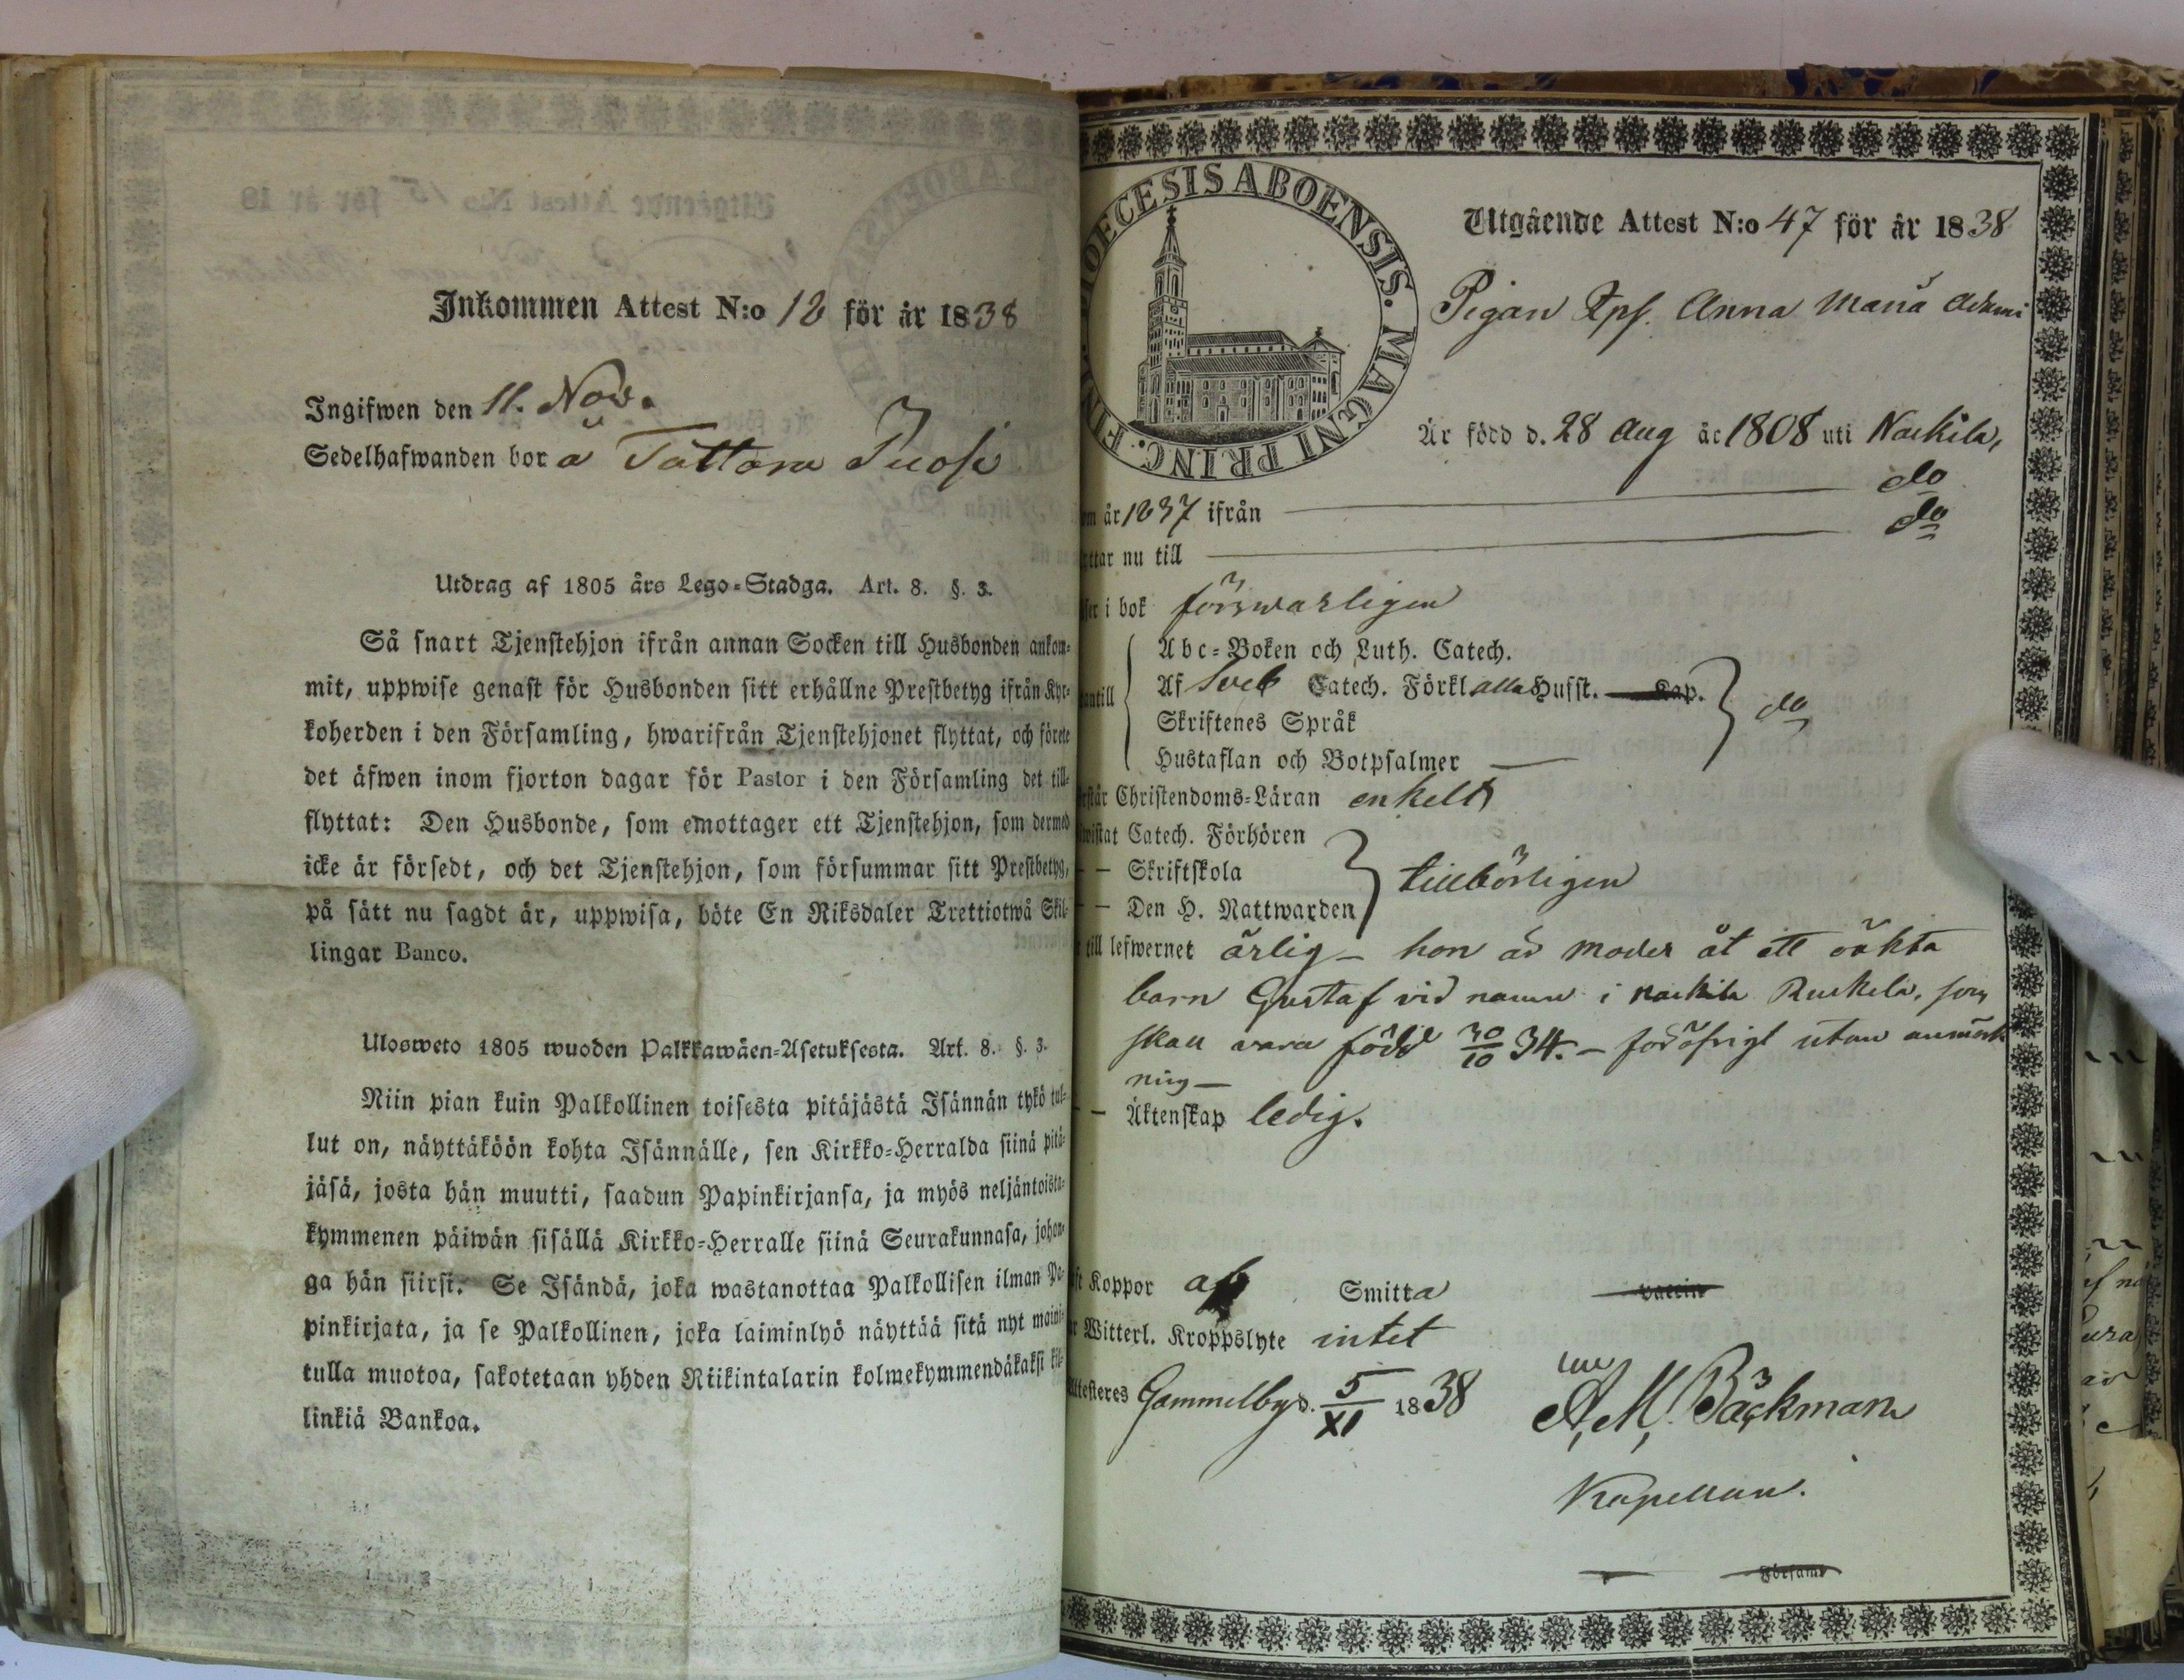 Inkommen Attest N:o 12 för år 1838
Ingifwen den 11. Nov.
Sedelhafwanden bor å Tattara Puosi
Utdrag af 1805 års Lego-Stadga. Art. 8. §. 3.
Så snart Tjenstehjon ifrån annan Socken till Husbonden ankom-
mit, uppwise genast för Husbonden sitt erhållne Prestbetyg ifrån Kyr-
koherden i den Församling, hwarifrån Tjenstehjonet flyttat, och förete
det äfwen inom fjorton dagar för Pastor i den Församling det till-
flyttat: Den Husbonde, som emottager ett Tjenstehjon, som dermed
icke är försedt, och det Tjenstehjon, som försummar sitt Prestbetyg,
på sätt nu sagdt är, uppwisa, böte En Riksdaler Trettiotwå Skil-
lingar Banco.
Ulosweto 1805 wuoden Palkkawäen-Asetuksesta. Art. 8. §. 3.
Niin pian kuin Palkollinen toisesta pitäjästä Isännän tykö tul-
lut on, näyttäköön kohta Isännälle, sen Kirkko-Herralda siinä pitä-
jäsä, josta hän muutti, saadun Papinkirjansa, ja myös neljäntoista-
kymmenen päiwän sisällä Kirkko-Herralle siinä Seurakunnasa, johon-
ga hän siirsi. Se Isändä, joka wastanottaa Palkollisen ilman Pa-
pinkirjata, ja se Palkollinen, joka laiminlyö näyttää sitä nyt maini-
tulla muotoa, sakotetaan yhden Riikintalarin kolmekymmendäkaksi kil-
linkiä Bankoa.
DIOECESIS ABOENSIS. MAGNI PRINC. FINL.
Utgående Attest N:o 47 för år 1838
Pigan Anna Maria
Är född d. 28 Aug år 1808 uti Nackila,
om år 1837 ifrån do
ttar nu till do
ser i bok förswarligen
Abc-Boken och Luth. Catech.
antill Af Sveb Catech. Förkl alla Husst. Kap. do
Skriftenes Språk
Hustaflan och Botpsalmer
rstår Christendoms-Läran enkelt
wistat Catech. Förhören
— Skriftskola tillbörligen
— Den H. Nattwarden
till lefwernet ärlig – hon är moder åt ett oäkta
barn Gustaf vid namn i Nackila Ruskela, som
skall vara född 30/10 34. – föröfrigt utan anmärk
ning –
— Äktenskap ledig.
ft Koppor af Smitta vaccin
r Witterl. Kroppslyte intet
Attesteres Gammelby d. 5/XI 1838 A. M. Bäckman
Kapellan.
Församl